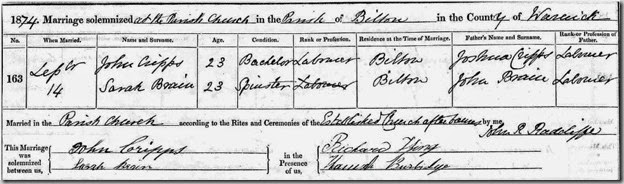 1874. Marriage solemnized at the Parish Church in the Parish of Bilton in the County of Warwick
No. When Married. Name and Surname. Age. Condition. Rank or Profession. Residence at the Time of Marriage. Father's Name and Surname. Rank or Profession of Father.
163 Septr 14 John Cripps 23 Bachelor Labourer Bilton Joshua Cripps Labourer
Sarah Brain 23 Spinster Labourer Bilton John Brain Labourer
Married in the Parish Church according to the Rites and Ceremonies of the Established Church after banns by me,
John R Radcliffe
This Marriage was solemnized between us, John Cripps
Sarah Brain
in the Presence of us, Richard
Hannah Burbidge